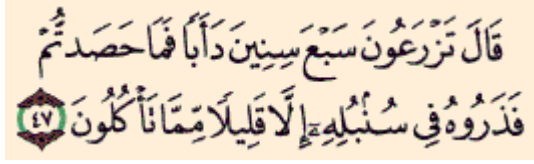 قَالَ تَزْرَعُونَ سَبْعَ سِنِينَ دَأَبًا فَمَا حَصَدتُّمْ
فَذَرُوهُ فِي سُنۢبُلِهِۦٓ إِلَّا قَلِيلًا مِّمَّا تَأْكُلُونَ ٤٧